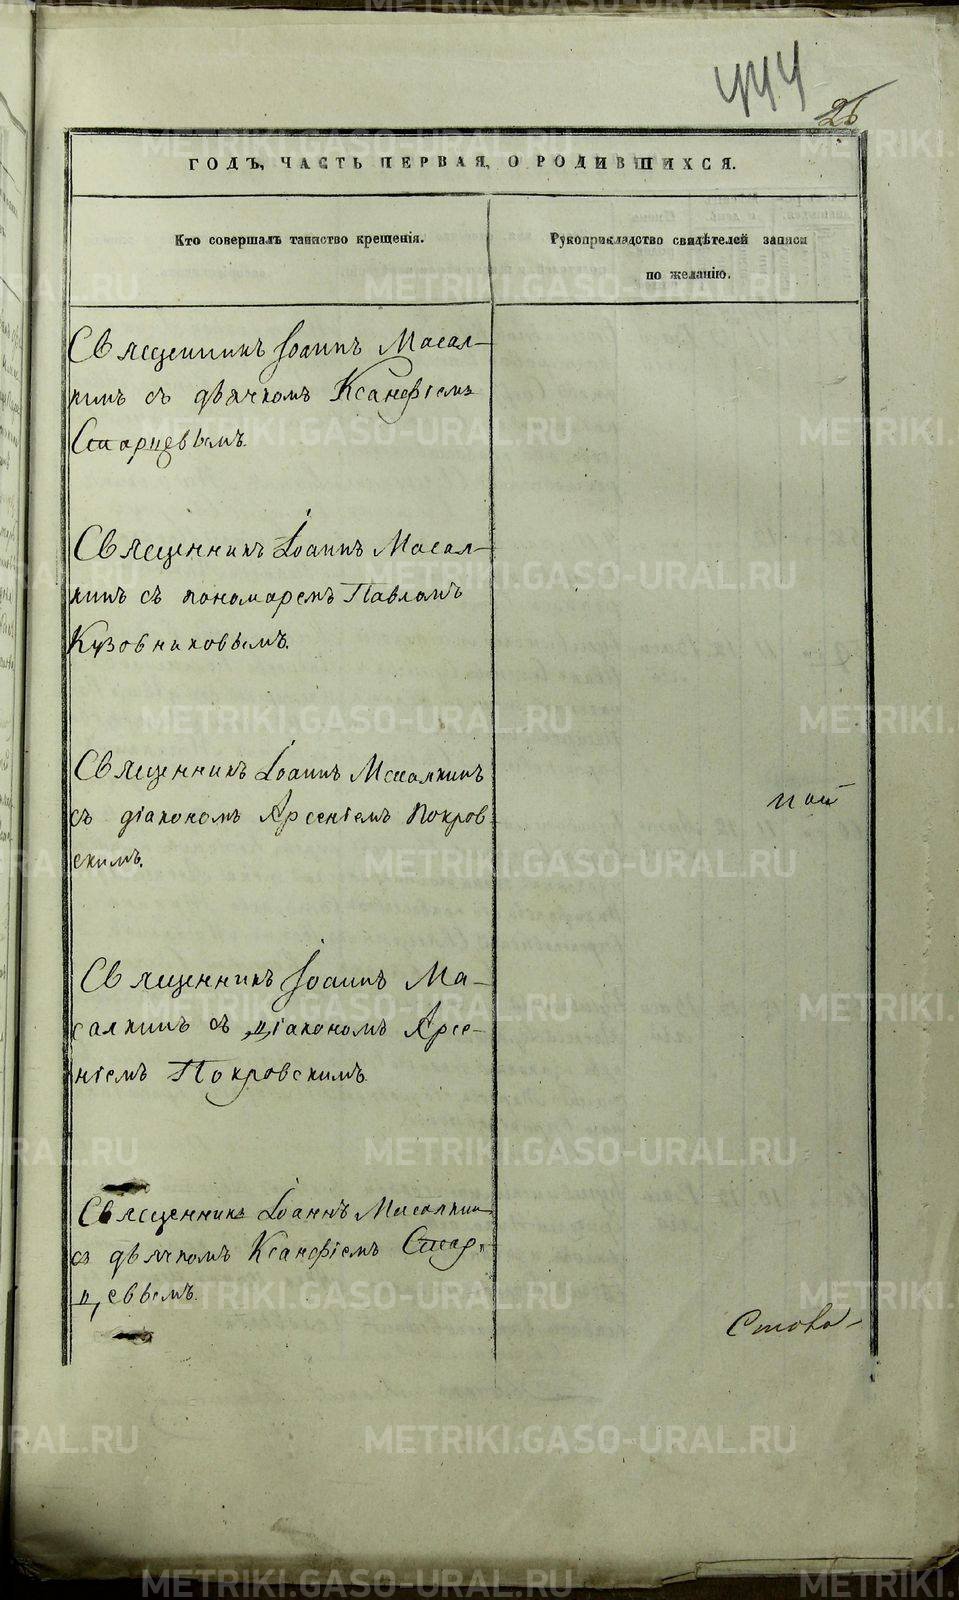 444
26
ГОДЪ, ЧАСТЬ ПЕРВАЯ, О РОДИВШИХСЯ.
Кто совершалъ таинство крещенія.
Рукоприкладство свидѣтелей записи
по желанію.
Священникъ Іоаннъ Масал-
кинъ съ дьячкомъ Ксанфіемъ
Старцевымъ.
Священникъ Іоаннъ Масал-
кинъ съ пономаремъ Павломъ
Кузовниковымъ.
Священникъ Іоаннъ Масалкинъ
съ діакономъ Арсеніемъ Покров
скимъ.
Священникъ Іоаннъ Ма-
салкинъ съ діакономъ Арсе-
ніемъ Покровскимъ
Священникъ Іоаннъ Масалкин
съ дьячкомъ Ксанфіемъ Стар-
цевымъ.
METRIKI.GASO-URAL.RU